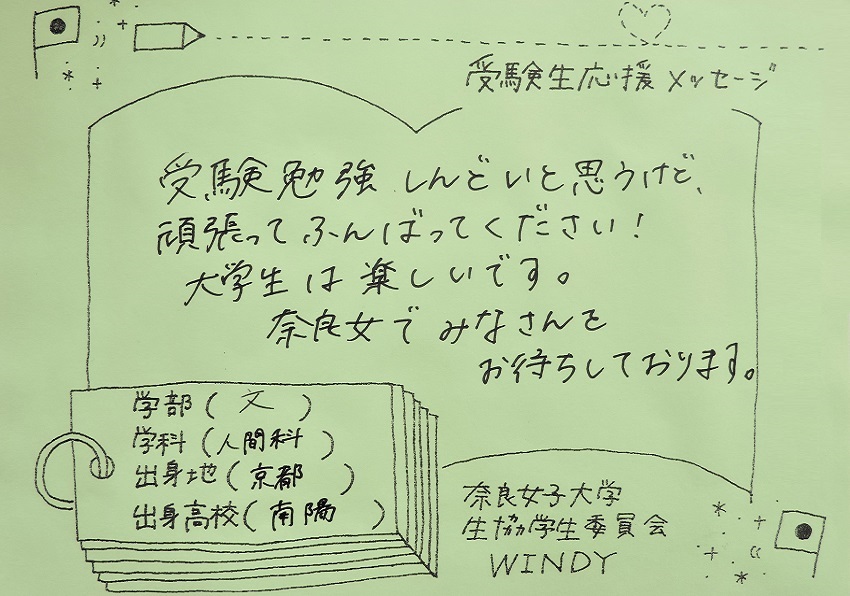 受験生応援メッセージ
受験勉強しんどいと思うけど、
頑張ってふんばってください！
大学生は楽しいです。
奈良女でみなさんを
お待ちしております。
学部（ 文 ）
学科（人間科）
出身地（京都 ）
出身高校（南陽 ）
奈良女子大学
生協学生委員会
WINDY